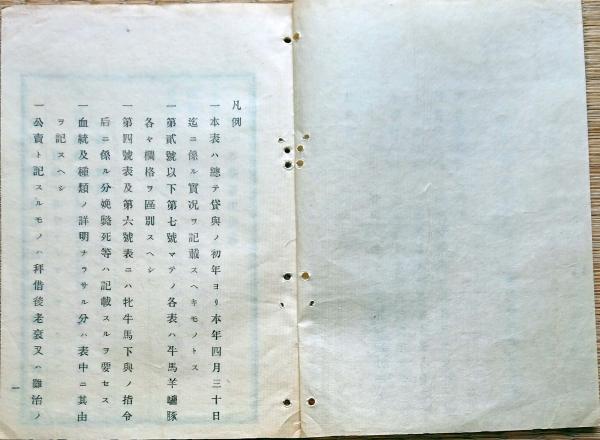 凡例
一本表ハ總テ貸與ノ初年ヨリ本年四月三十日
迄ニ係ル實況ヲ記載スヘキモノトス
一第貳號以下第七號マテノ各表ハ牛馬羊驢豚
各々欄格ヲ區別スヘシ
一第四號表及第六號表ニハ牝牛馬下與ノ指令
后ニ係ル分娩斃死等ハ記載スルヲ要セス
一血統及種類ノ詳明ナラサル分ハ表中ニ其由
ヲ記スヘシ
一公賣ト記スルモノハ拜借後老衰又ハ難治ノ
一